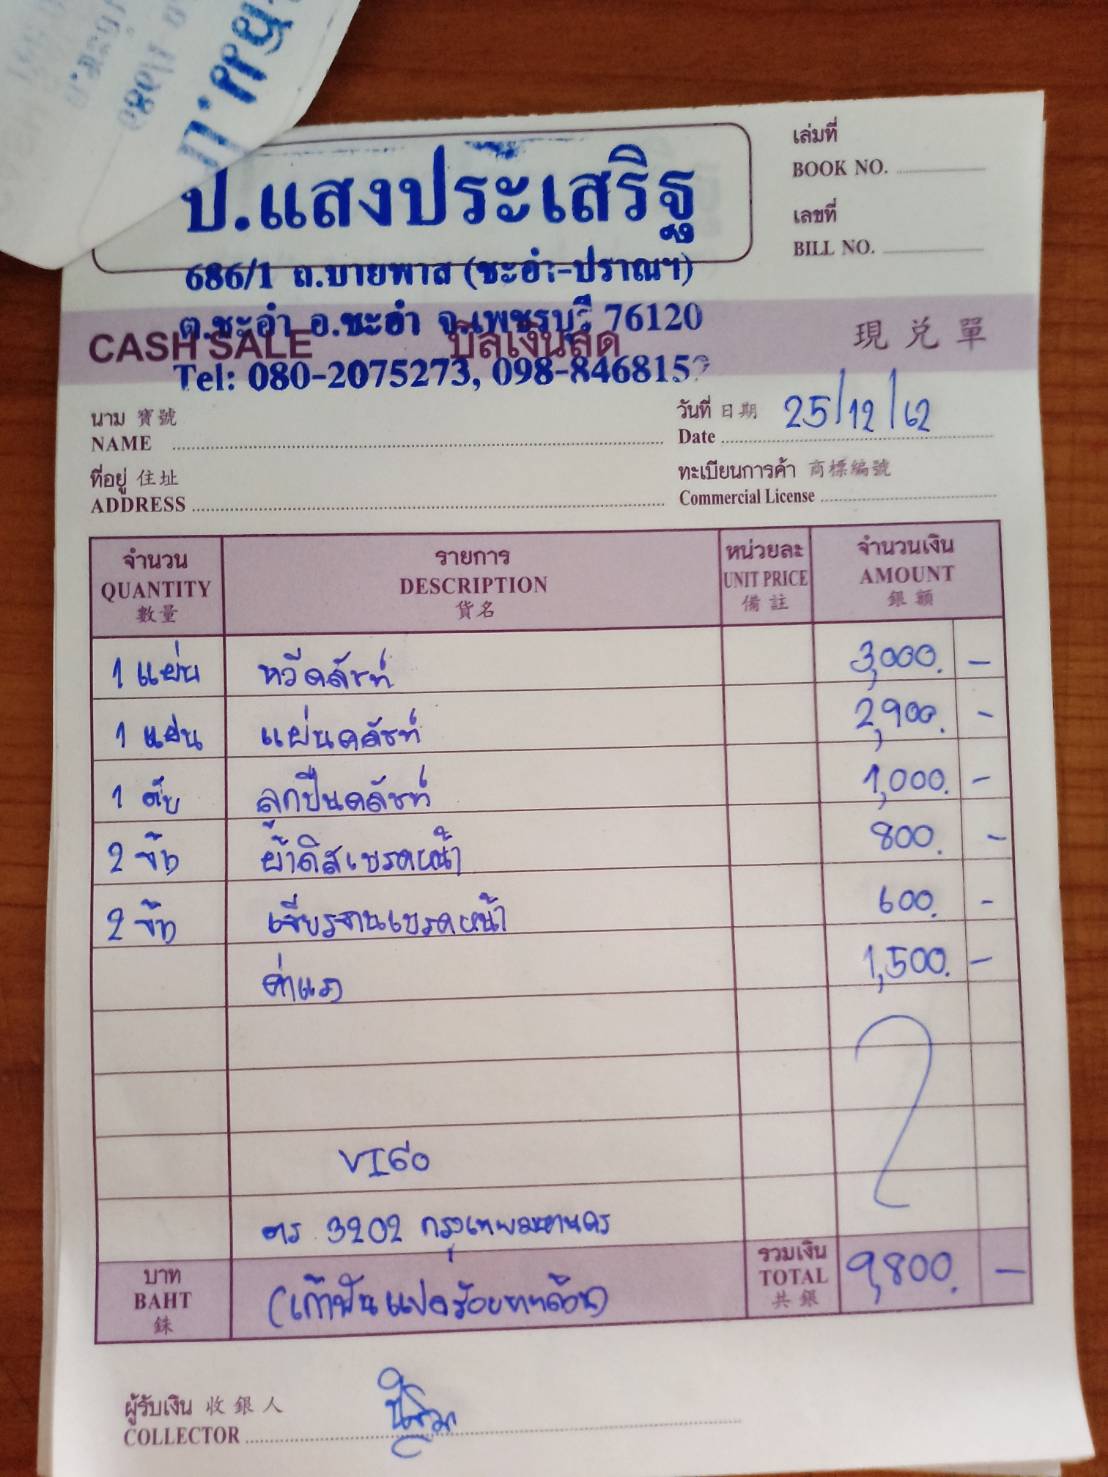 ป.แสงประเสริฐ
686/1 ถ.บายพาส (ชะอำ-ปราณฯ)
ต.ชะอำ อ.ชะอำ จ.เพชรบุรี 76120
Tel: 080-2075273, 098-846815
เล่มที่
BOOK NO.
เลขที่
BILL NO.
CASH SALE บิลเงินสด 現兌單
นาม 寶號
NAME
วันที่ 日期 25/12/62
Date
ที่อยู่ 住址
ADDRESS
ทะเบียนการค้า 商標編號
Commercial License
จำนวน รายการ หน่วยละ จำนวนเงิน
QUANTITY DESCRIPTION UNIT PRICE AMOUNT
數量 貨名 備註 銀額
1 แผ่น หวีคลัชท์ 3,000. -
1 แผ่น แผ่นคลัชท์ 2,900. -
1 ตับ ลูกปืนคลัชท์ 1,000. -
2 ข้าง ผ้าดิสเบรคหน้า 800. -
2 ข้าง เจียรจานเบรคหน้า 600. -
ค่าแรง 1,500. -
VIGO
ตร 3202 กรุงเทพมหานคร
บาท รวมเงิน
BAHT (เก้าพันแปดร้อยบาทถ้วน) TOTAL 9,800. -
銖 共銀
ผู้รับเงิน 收銀人
COLLECTOR